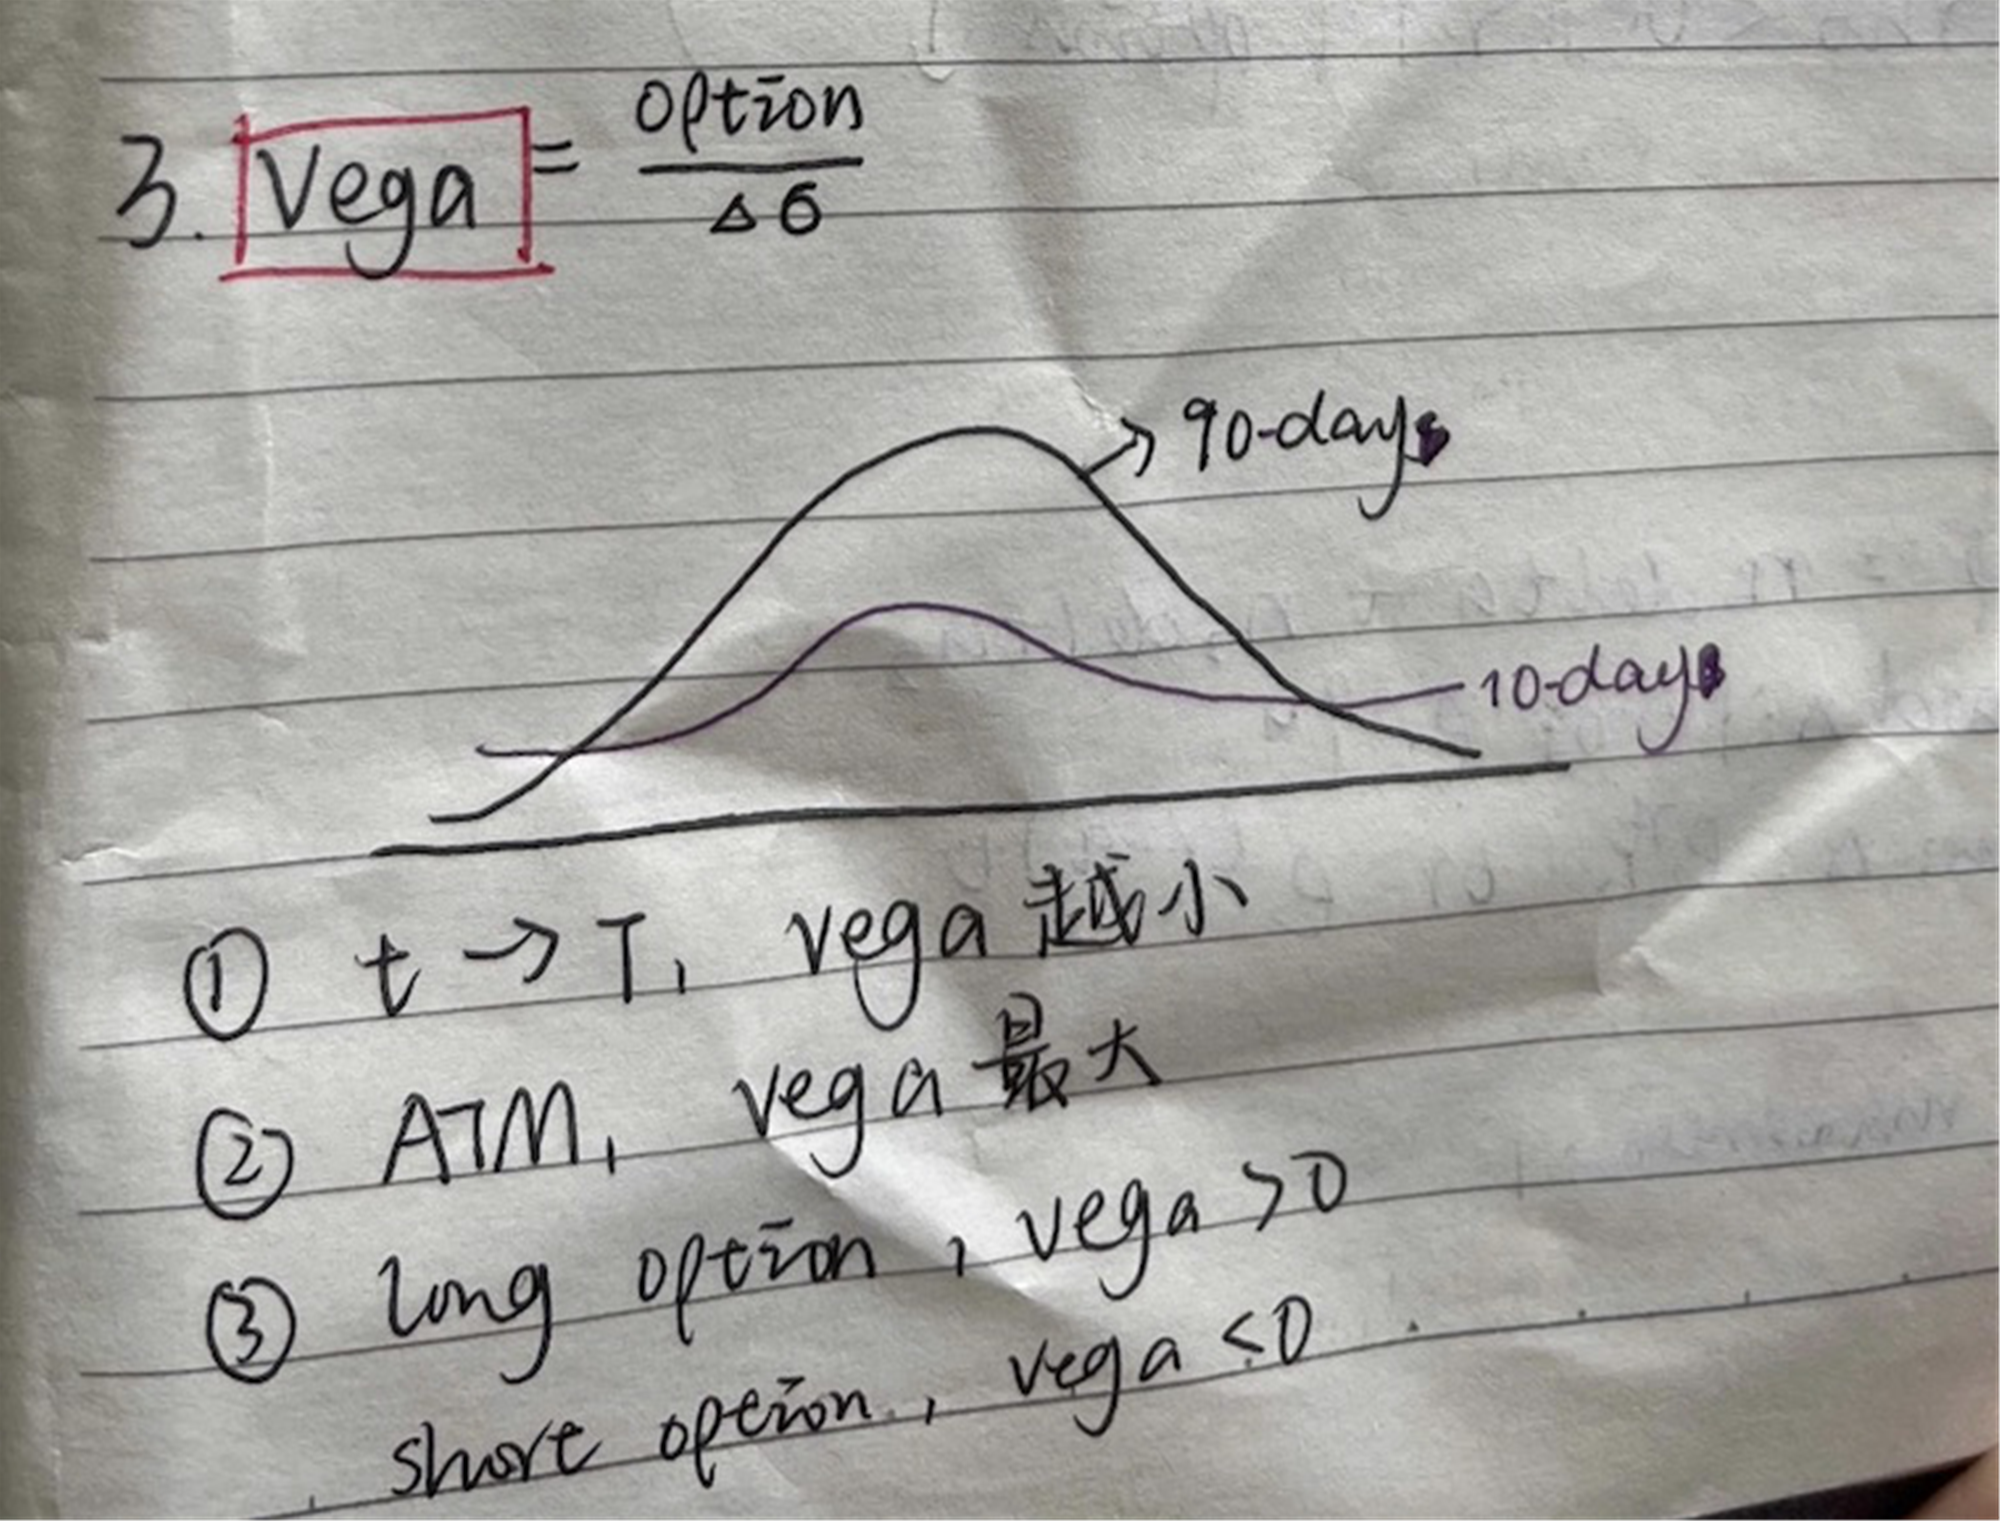 3. Vega = option
Δ6
90-days
10-days
① t → T, vega 越小
② ATM, vega 最大
③ long option, vega >0
short option, vega <0